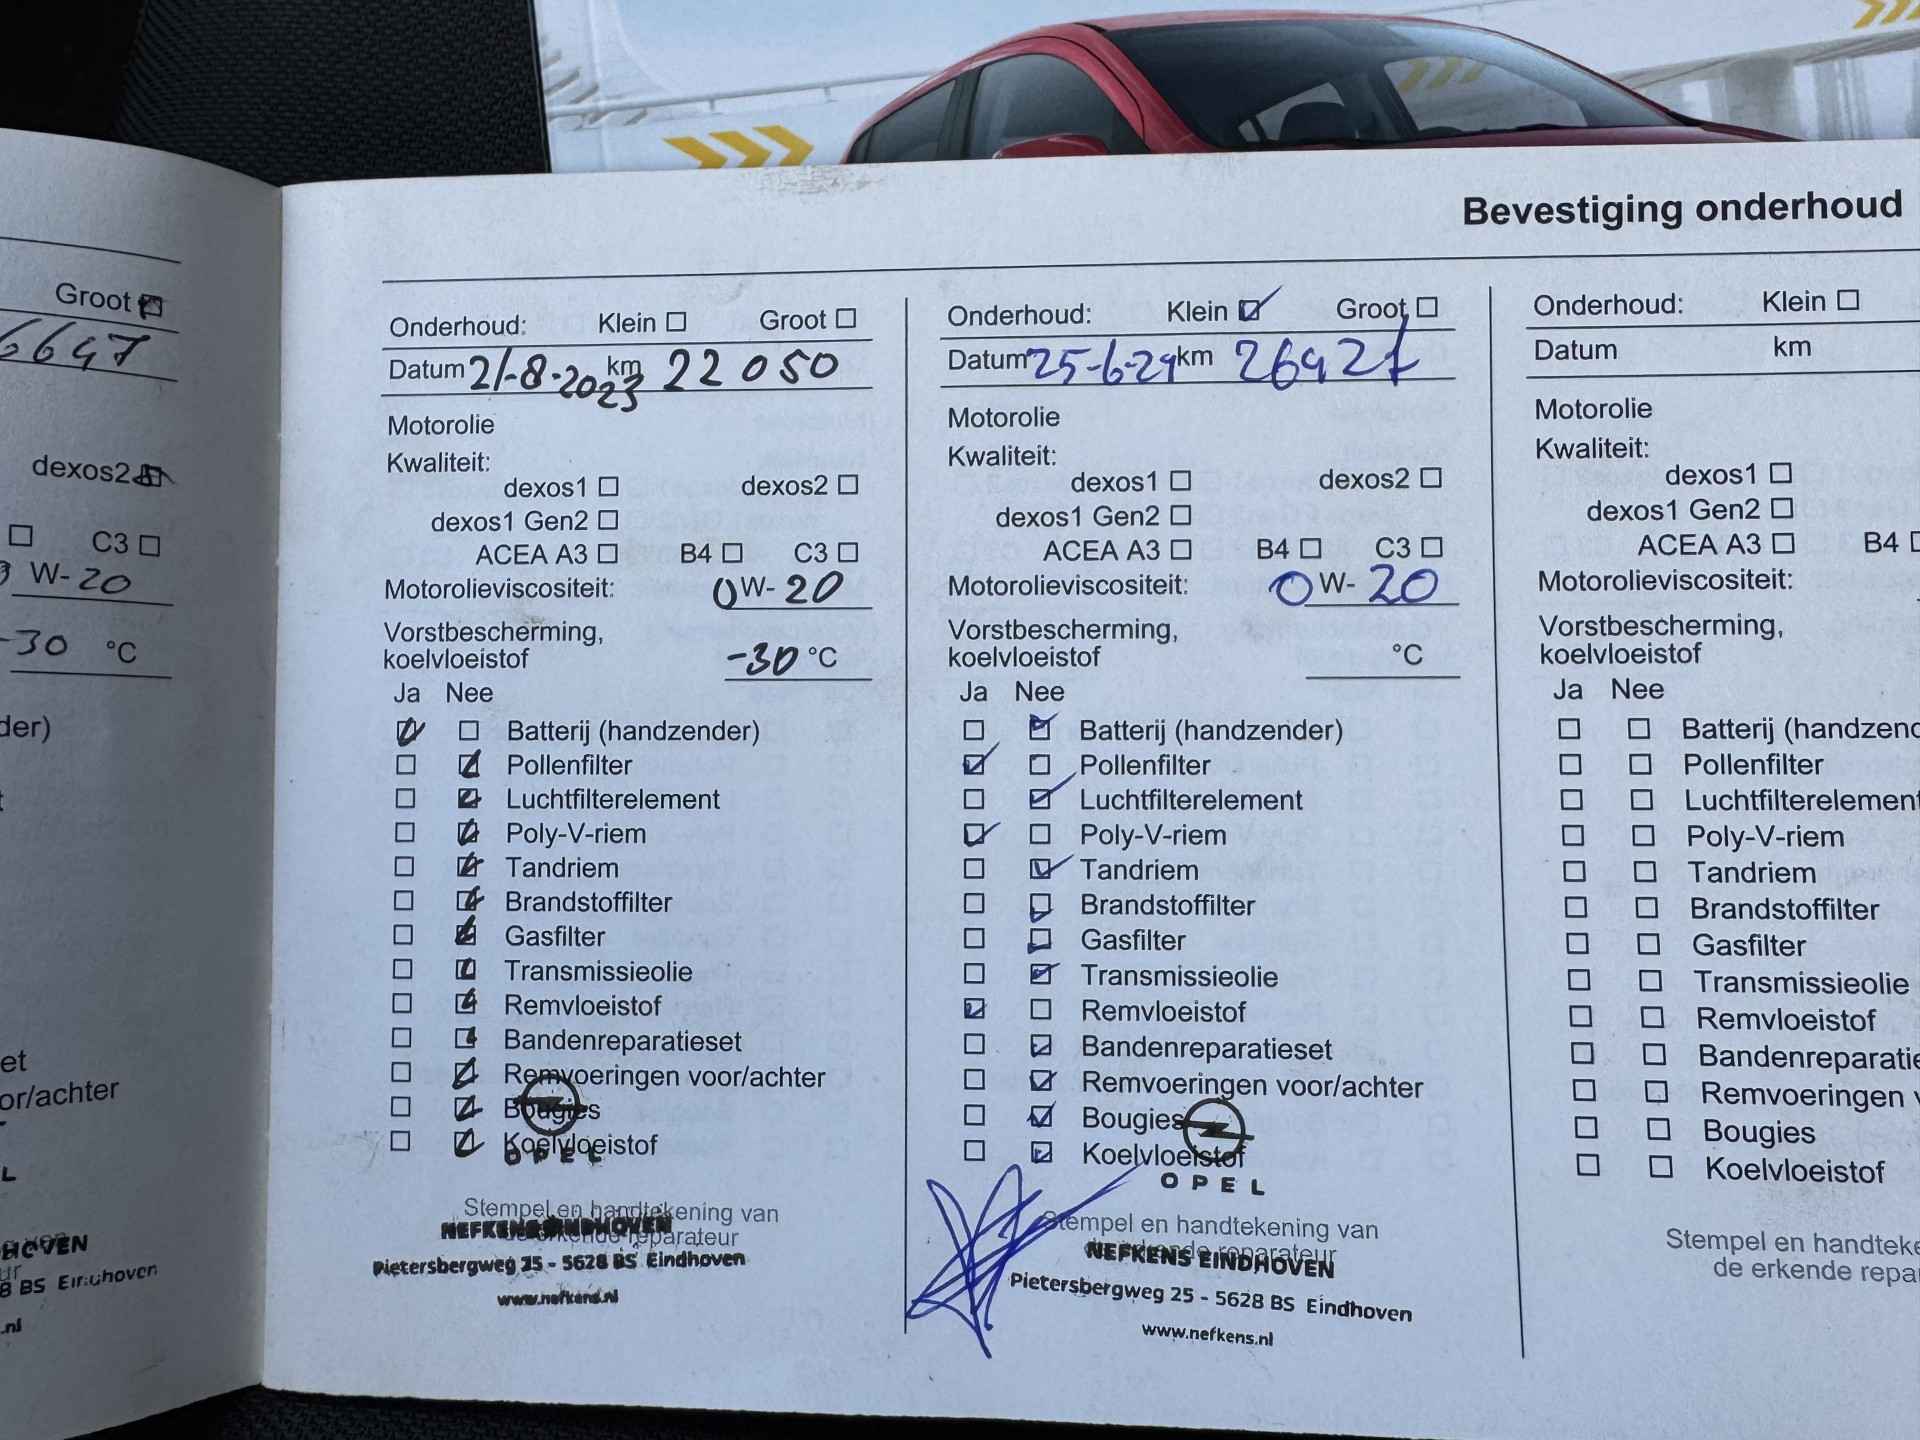 Groot
6647
dexos2
C3
W-20
-30 °C
der)
et
or/achter
L
HOVEN
8 BS Eindhoven
.nl
Bevestiging onderhoud
Onderhoud: Klein Groot
Datum 21-8-2023 km 22 050
Motorolie
Kwaliteit:
dexos1 dexos2
dexos1 Gen2
ACEA A3 B4 C3
Motorolieviscositeit: 0 W- 20
Vorstbescherming,
koelvloeistof -30 °C
Ja Nee
Batterij (handzender)
Pollenfilter
Luchtfilterelement
Poly-V-riem
Tandriem
Brandstoffilter
Gasfilter
Transmissieolie
Remvloeistof
Bandenreparatieset
Remvoeringen voor/achter
Bougies
Koelvloeistof
OPEL
Stempel en handtekening van
de erkende reparateur
NEFKENS EINDHOVEN
Pietersbergweg 25 - 5628 BS Eindhoven
www.nefkens.nl
Onderhoud: Klein Groot
Datum 25-6-24 km 26927
Motorolie
Kwaliteit:
dexos1 dexos2
dexos1 Gen2
ACEA A3 B4 C3
Motorolieviscositeit: 0 W- 20
Vorstbescherming,
koelvloeistof °C
Ja Nee
Batterij (handzender)
Pollenfilter
Luchtfilterelement
Poly-V-riem
Tandriem
Brandstoffilter
Gasfilter
Transmissieolie
Remvloeistof
Bandenreparatieset
Remvoeringen voor/achter
Bougies
Koelvloeistof
OPEL
Stempel en handtekening van
de erkende reparateur
NEFKENS EINDHOVEN
Pietersbergweg 25 - 5628 BS Eindhoven
www.nefkens.nl
Onderhoud: Klein
Datum km
Motorolie
Kwaliteit:
dexos1
dexos1 Gen2
ACEA A3 B4
Motorolieviscositeit:
Vorstbescherming,
koelvloeistof
Ja Nee
Batterij (handzend
Pollenfilter
Luchtfilterelement
Poly-V-riem
Tandriem
Brandstoffilter
Gasfilter
Transmissieolie
Remvloeistof
Bandenreparatie
Remvoeringen v
Bougies
Koelvloeistof
Stempel en handteke
de erkende repa